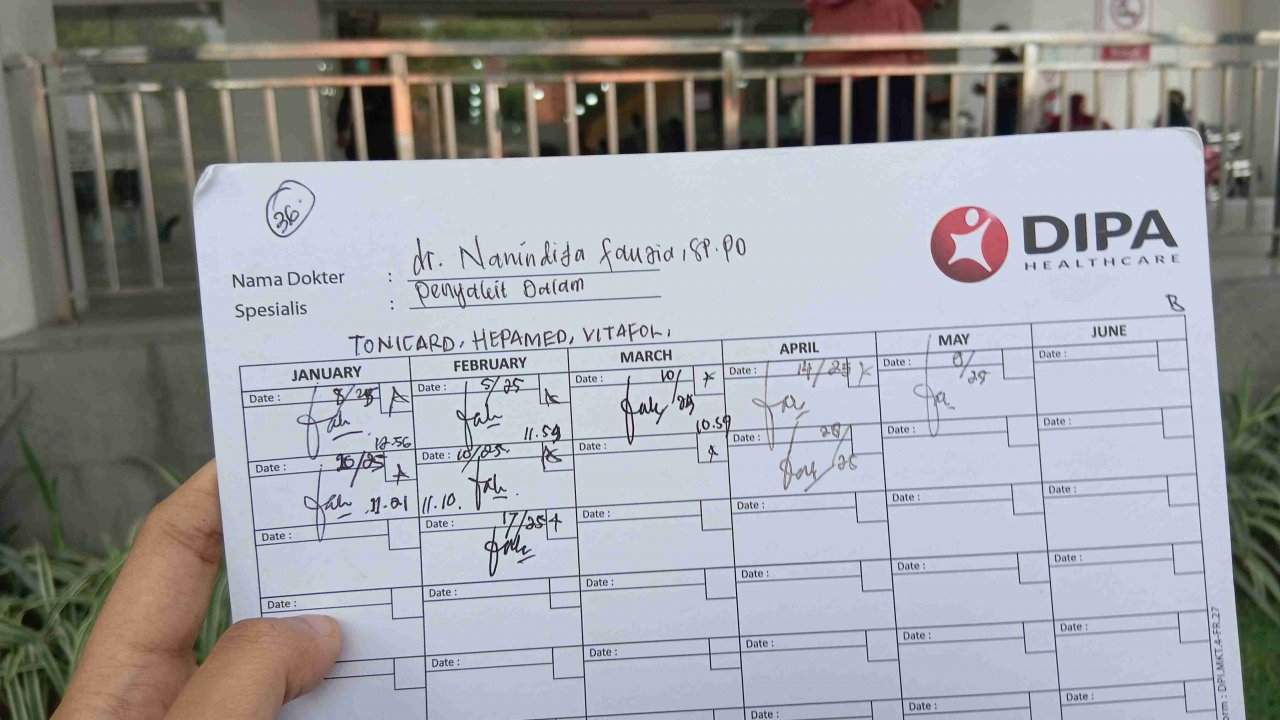 36
DIPA
HEALTHCARE
Nama Dokter : dr. Nanindiya Fauzia, SP.PD
Spesialis : Penyakit Dalam
B
TONICARD, HEPAMED, VITAFOL,
JANUARY FEBRUARY MARCH APRIL MAY JUNE
Date : 8/25 Date : 5/25 Date : 10/25 Date : 14/25 Date : 8/25 Date :
12.56 11.59 10.59
Date : 20/25 Date : 10/25 Date : Date : 28/25 Date : Date :
11.01 11.10.
Date : Date : 17/25 Date : Date : Date : Date :
Date : Date : Date : Date : Date : Date :
Date : Date : Date : Date : Date :
Date : Date : Date :
Form : DPI.MKT.4-FR.27